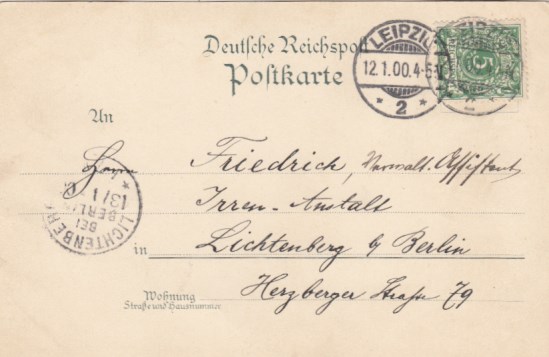 Deutsche Reichspost
Postkarte
LEIPZIG
12.1.00.4-5
* 2 *
An
Herrn Friedrich, Verwalt. Assistent
Irren-Anstalt
in Lichtenberg b/ Berlin
Herzberger Straße 79
LICHTENBERG
BEI
BERLIN
13/1
Wohnung
Straße und Hausnummer